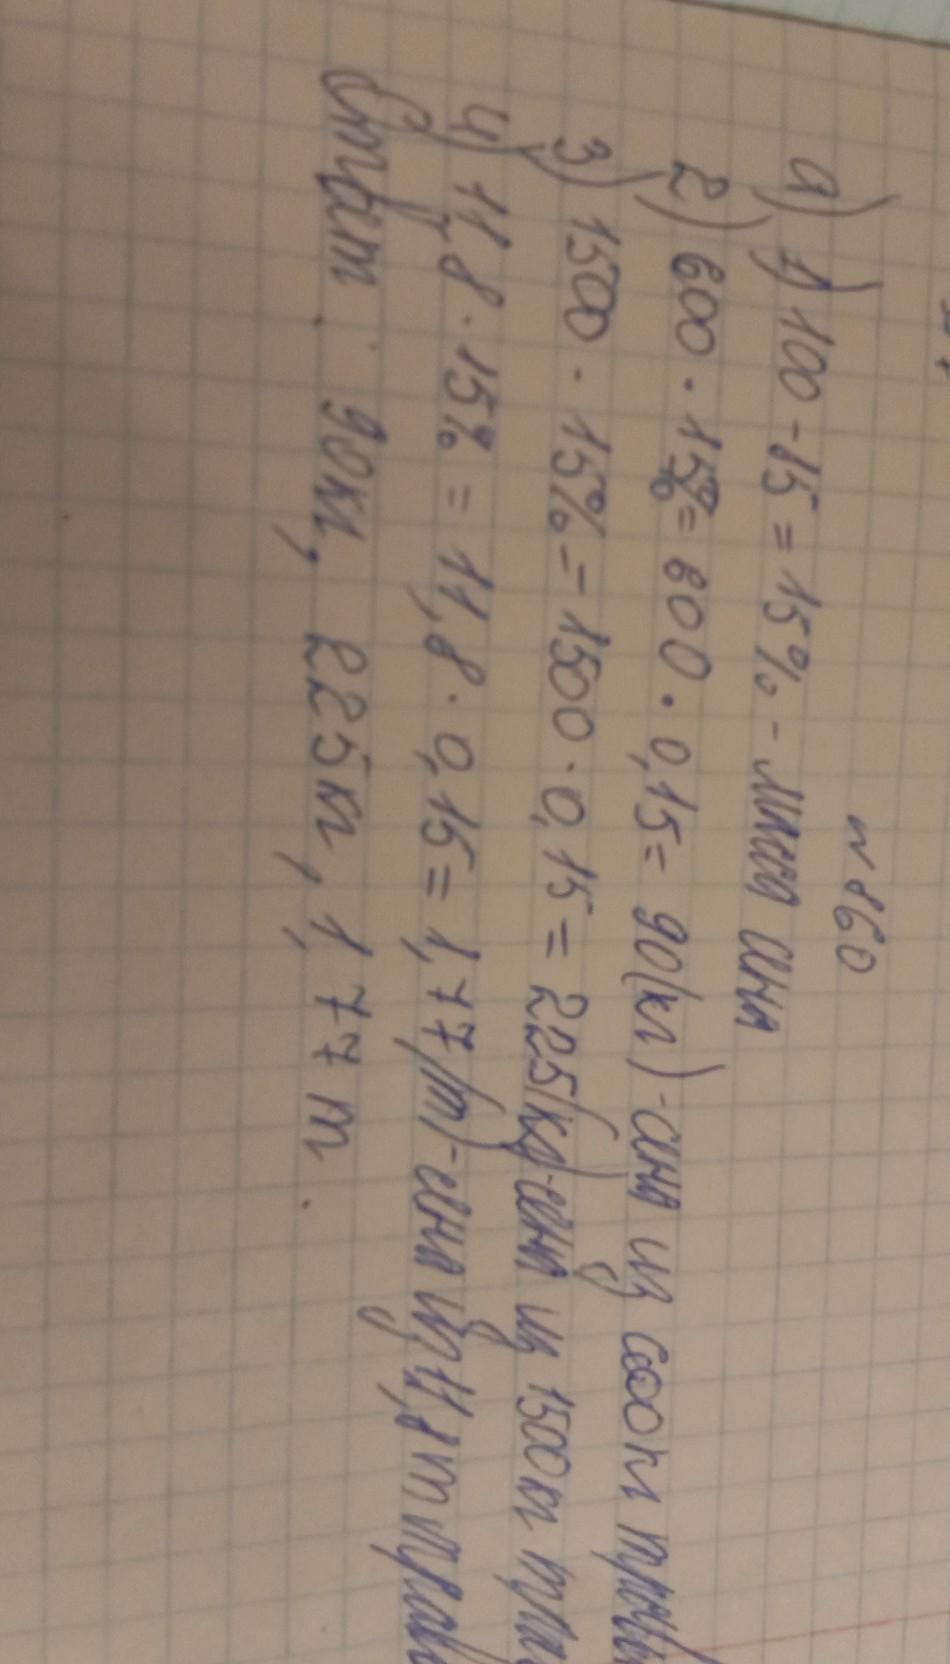 N 860
а) 1) 100 - 15 = 15% - масса сена
2) 600 · 15% = 600 · 0,15 = 90 (кг) - сена из 600 кг травы
3) 1500 · 15% = 1500 · 0,15 = 225 (кг) - сена из 1500 кг тра
4) 11,8 · 15% = 11,8 · 0,15 = 1,77 (т) - сена из 11,8 т травы
Ответ: 90 кг, 225 кг, 1,77 т.